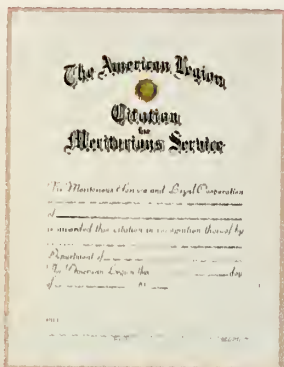 The American Legion
Citation
for
Meritorious Service
The Meritorious Service and Loyal Cooperation
of
is awarded this citation in recognition thereof by
Department of
The American Legion this day
of